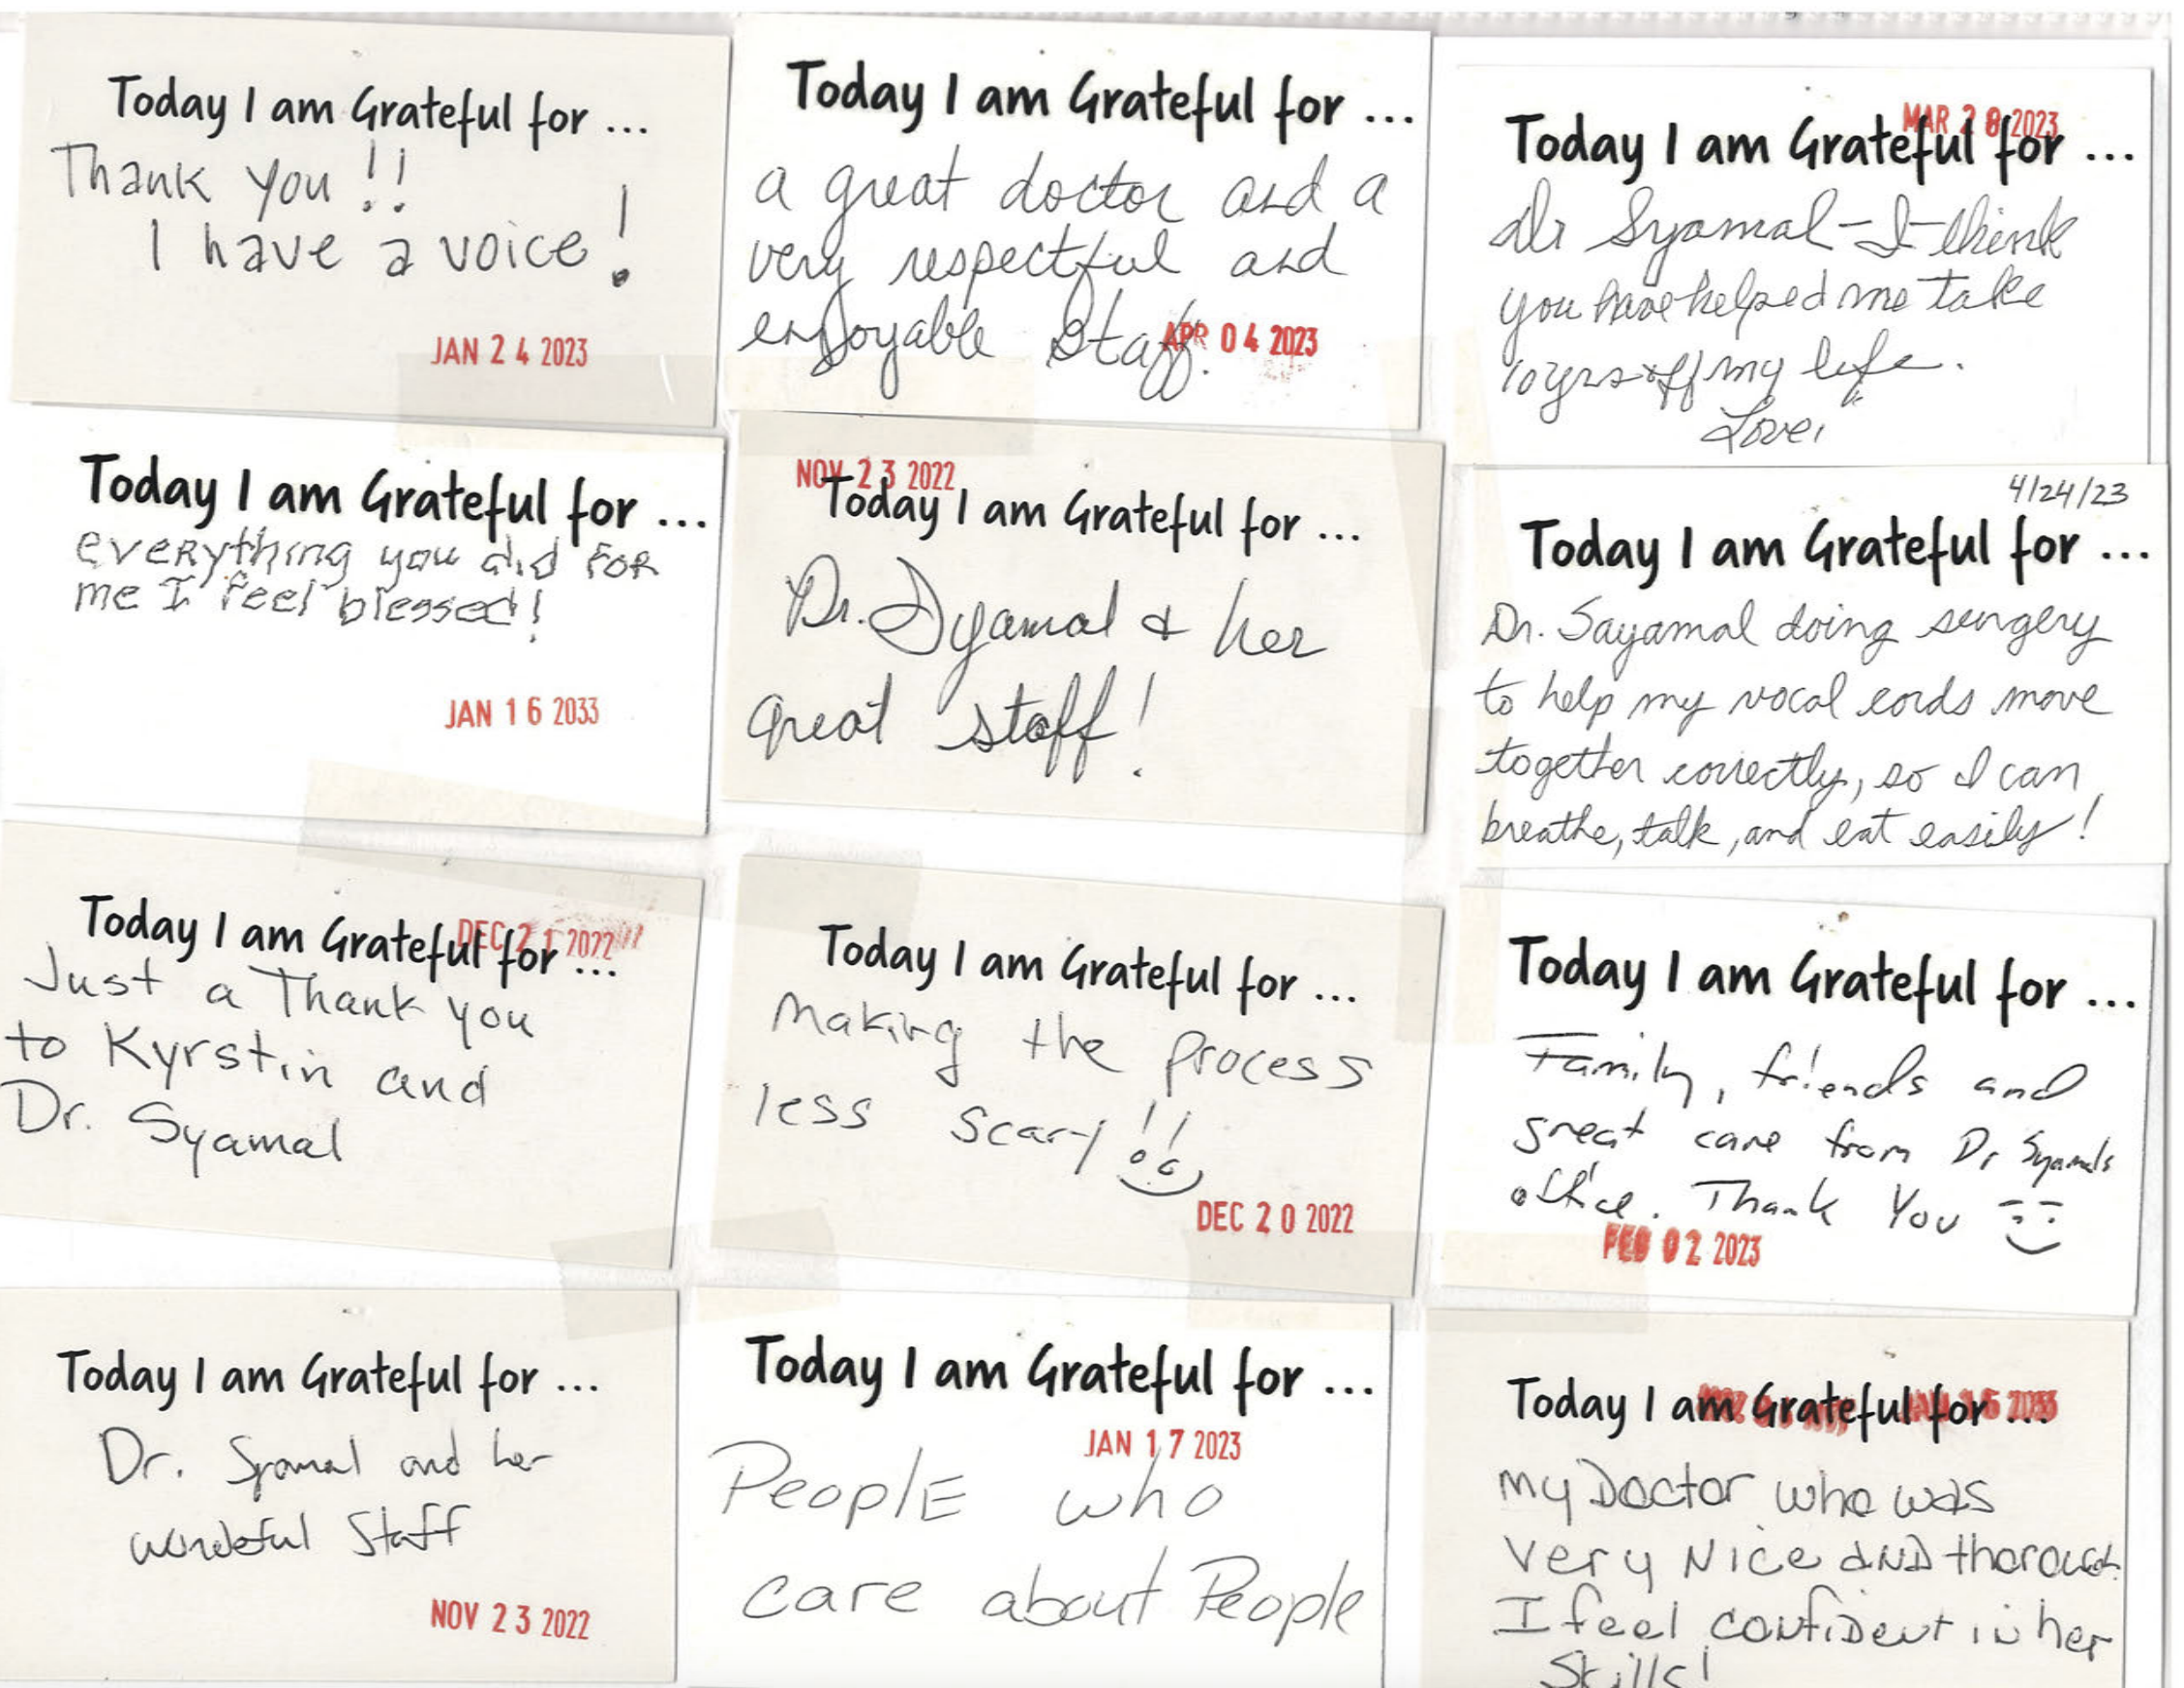 Today I am Grateful for ...
Thank you!!
I have a voice!
JAN 24 2023
Today I am Grateful for ...
a great doctor and a
very respectful and
enjoyable staff.
APR 04 2023
MAR 28 2023
Today I am Grateful for ...
Dr Syamal - I think
you have helped me take
10 yrs off my life.
Love,
Today I am Grateful for ...
everything you did for
me I feel blessed!
JAN 16 2033
NOV 23 2022
Today I am Grateful for ...
Dr. Syamal & her
great staff!
4/24/23
Today I am Grateful for ...
Dr. Sayamal doing surgery
to help my vocal cords move
together correctly, so I can
breathe, talk, and eat easily!
DEC 21 2022
Today I am Grateful for ...
Just a Thank you
to Kyrstin and
Dr. Syamal
Today I am Grateful for ...
Making the process
less scary!!
DEC 20 2022
Today I am Grateful for ...
Family, friends and
great care from Dr Syamals
office. Thank You
FEB 02 2023
Today I am Grateful for ...
Dr. Syamal and her
wonderful Staff
NOV 23 2022
Today I am Grateful for ...
JAN 17 2023
PeoplE who
care about People
Today I am Grateful for ...
My Doctor who was
very Nice AND thorough
I feel confiDent in her
Skills!